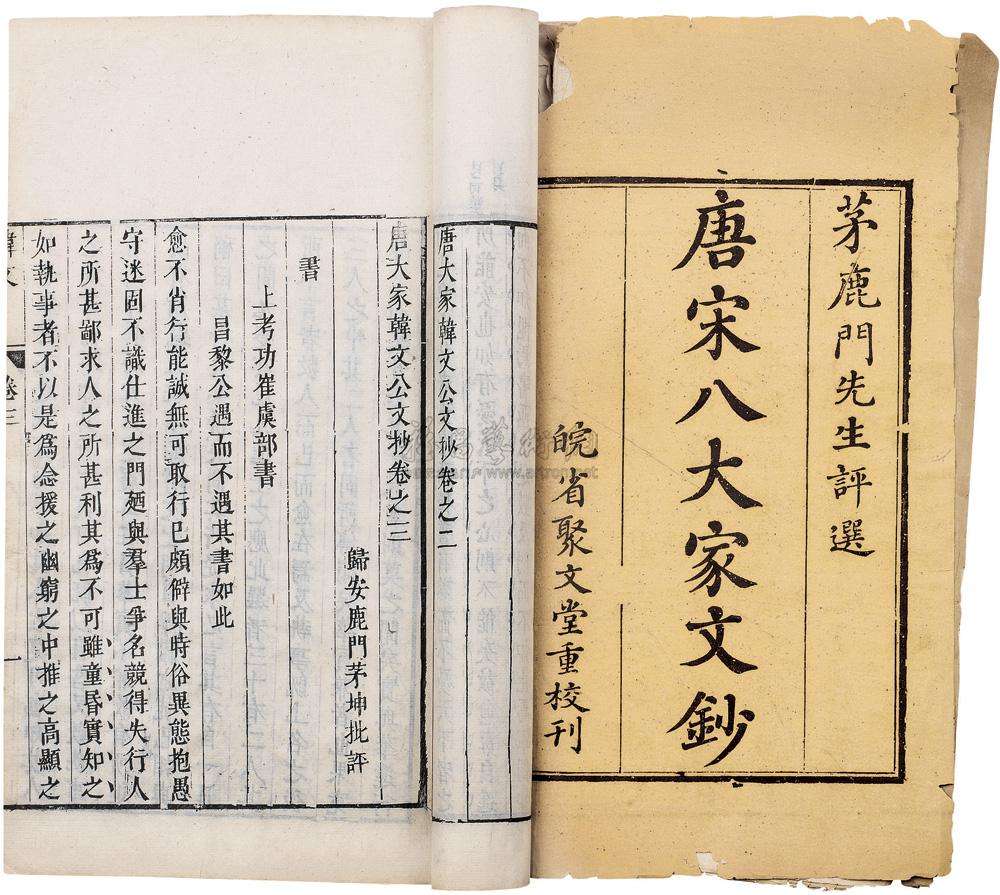 茅鹿門先生評選
唐宋八大家文鈔
皖省聚文堂重校刊
唐大家韓文公文抄卷之二
唐大家韓文公文抄卷之三
歸安鹿門茅坤批評
書
上考功崔虞部書
昌黎公遇而不遇其書如此
愈不肖行能誠無可取行已頗僻與時俗異態抱愚
守迷固不識仕進之門廼與羣士爭名競得失行人
之所甚鄙求人之所甚利其爲不可雖童昏實知之
如執事者不以是爲念援之幽窮之中推之高顯之
韓文
卷三
一